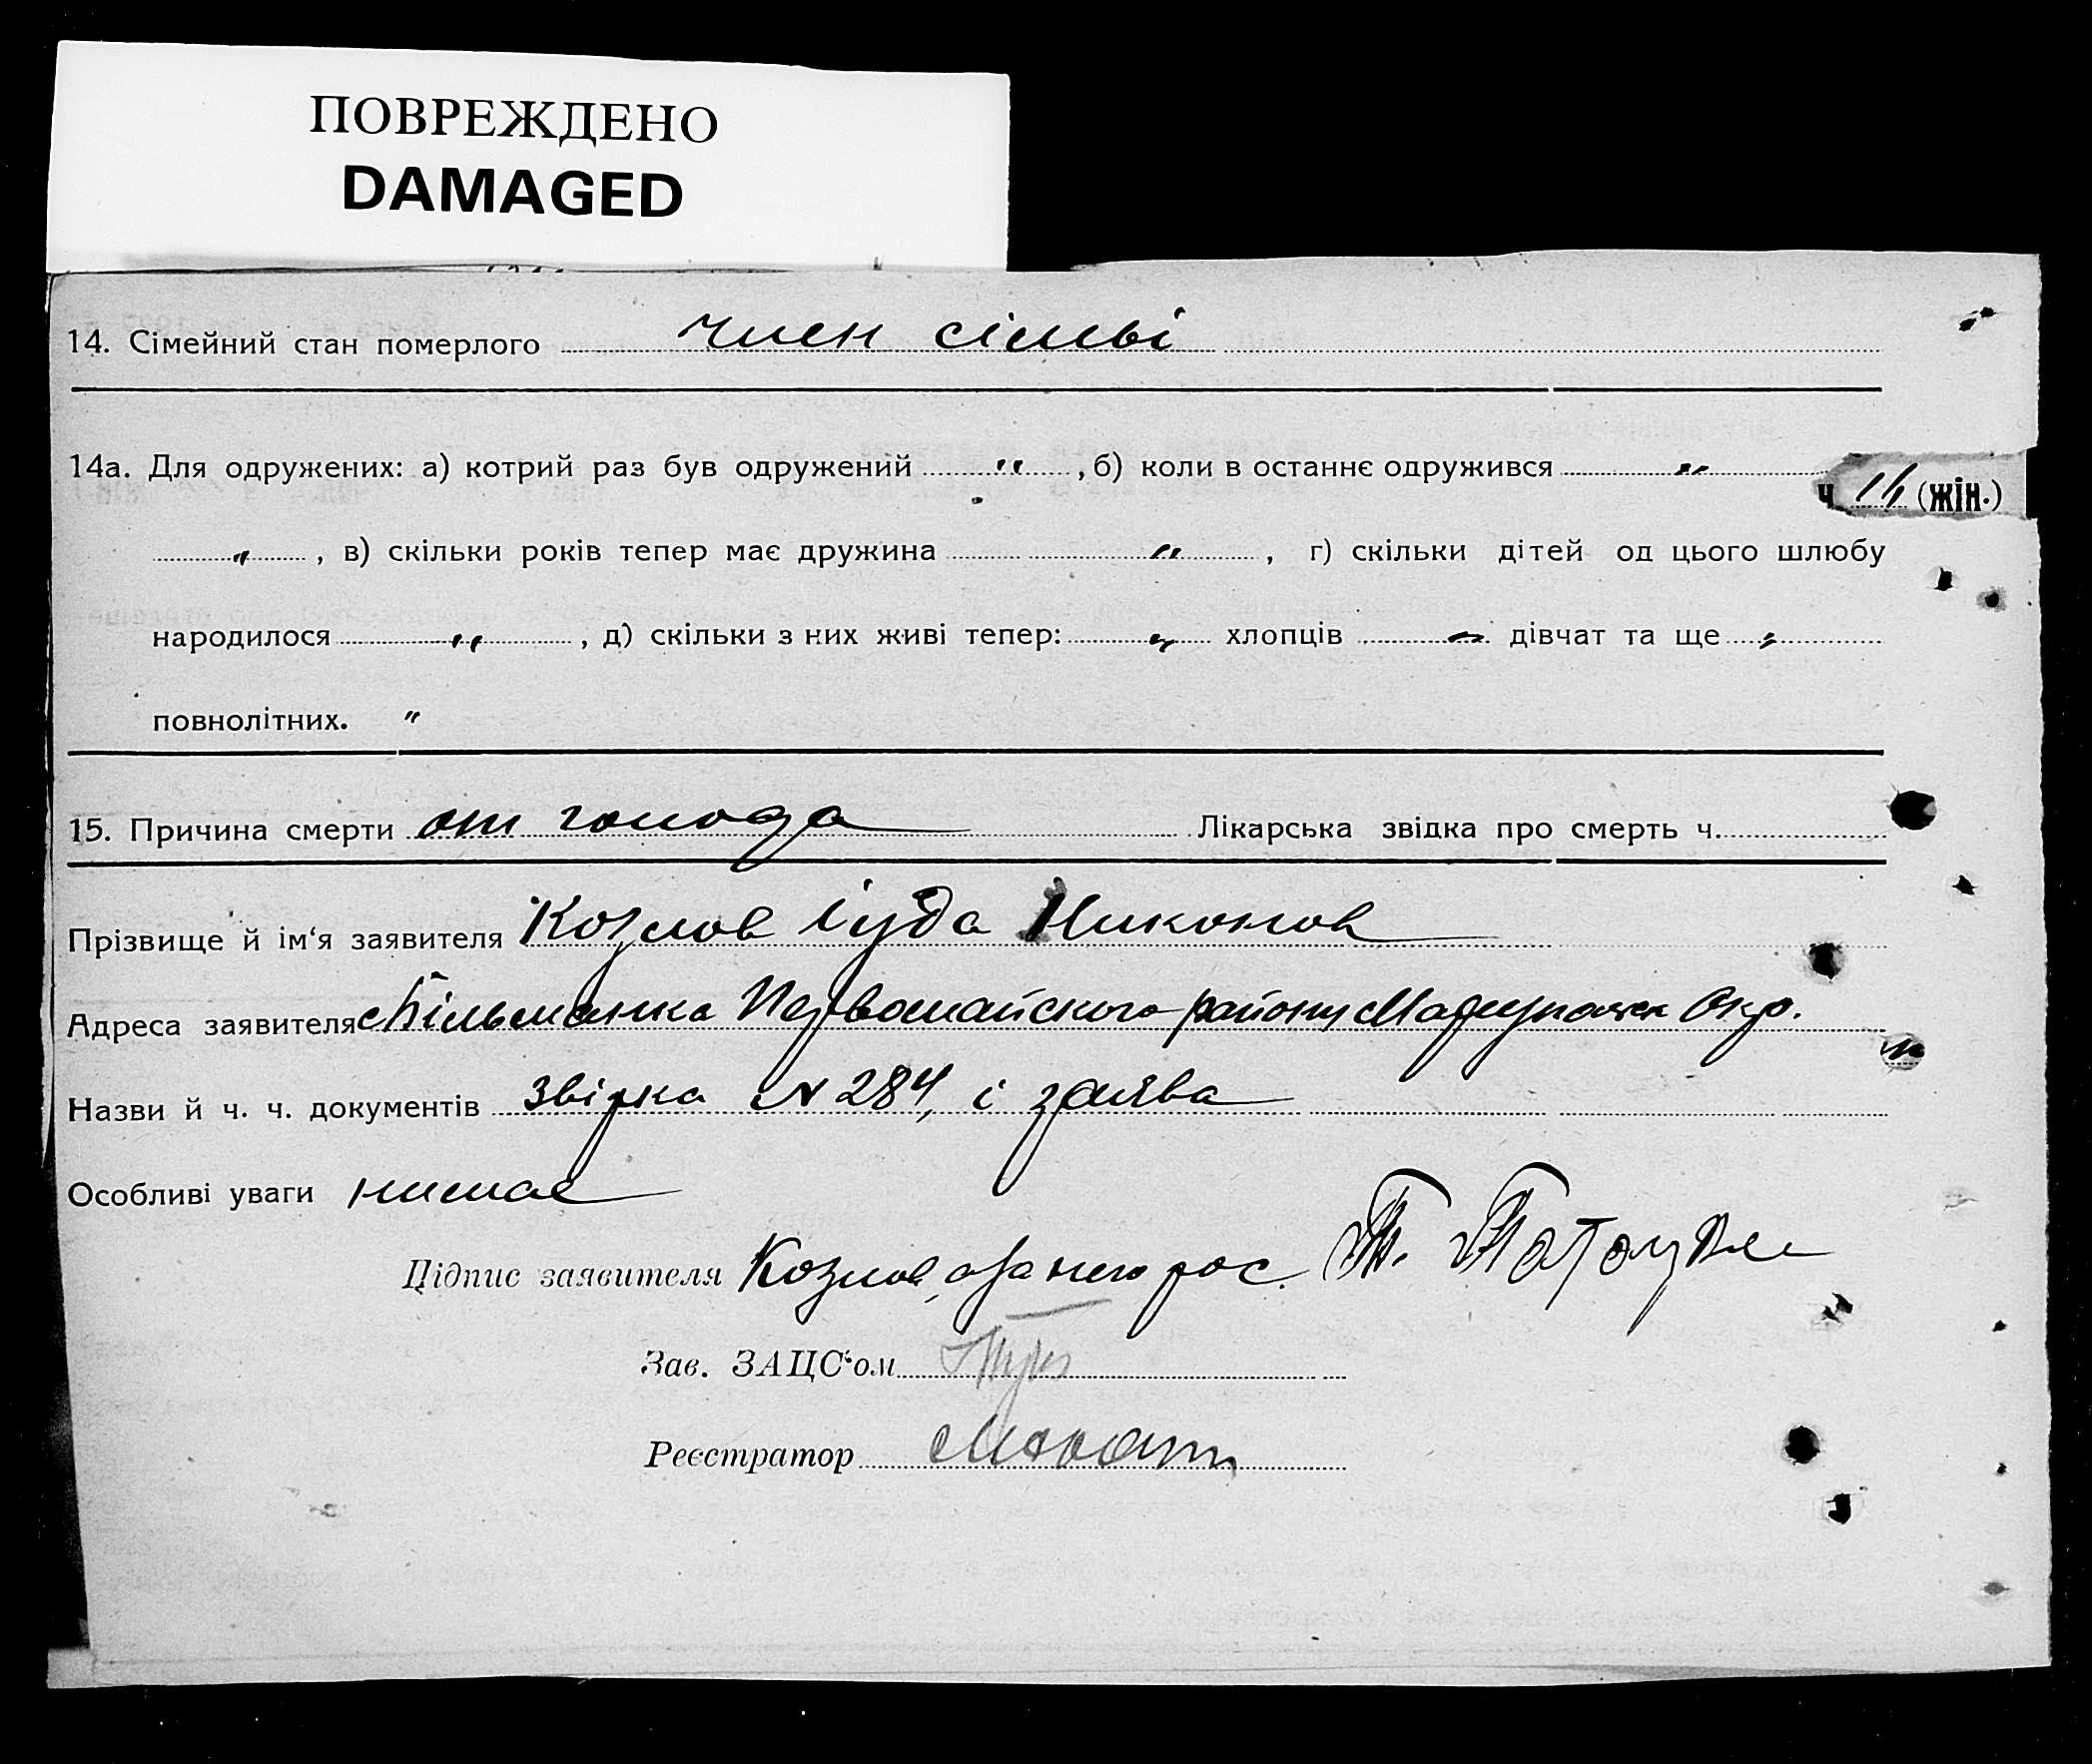 ПОВРЕЖДЕНО
DAMAGED
14. Сімейний стан померлого член сімьі
14а. Для одружених: а) котрий раз був одружений " , б) коли в останнє одружився "
ч. 14 (жін.)
" , в) скільки років тепер має дружина " , г) скільки дітей од цього шлюбу
народилося " , д) скільки з них живі тепер: " хлопців " дівчат та ще "
повнолітних. "
15. Причина смерти от голода Лікарська звідка про смерть ч.
Прізвище й ім'я заявителя Козлов Іуда Никонов
Адреса заявителя с Більманка Первомайского району Марупольск Окр.
Назви й ч. ч. документів Звірка N 284, і заява
Особливі уваги нимає
Підпис заявителя Козлов, а за него рос.
Зав. ЗАЦС'ом
Реєстратор